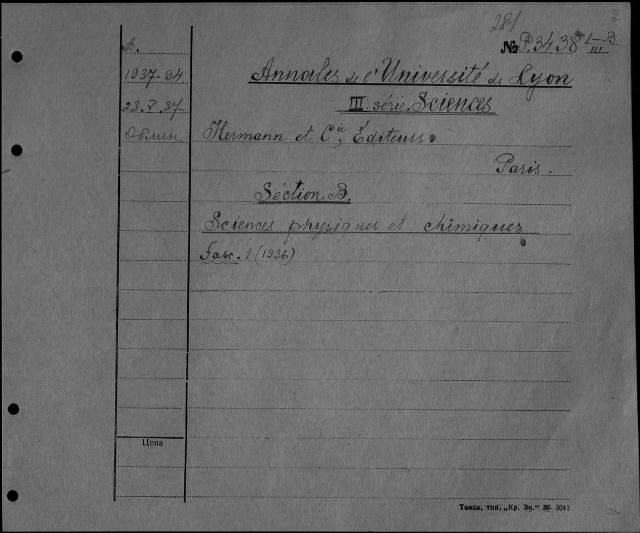 281
№ P. 3438 I-B
III
A.
1937-94
Annales de l'Université de Lyon
23.V.37
III série. Sciences
Обмен
Hermann et Cie, Éditeurs.
Paris.
Séction B.
Sciences physiques et chimiques
Fasc. 1 (1936)
Цена
Томск. тип. „Кр. Зн." 36- 3041